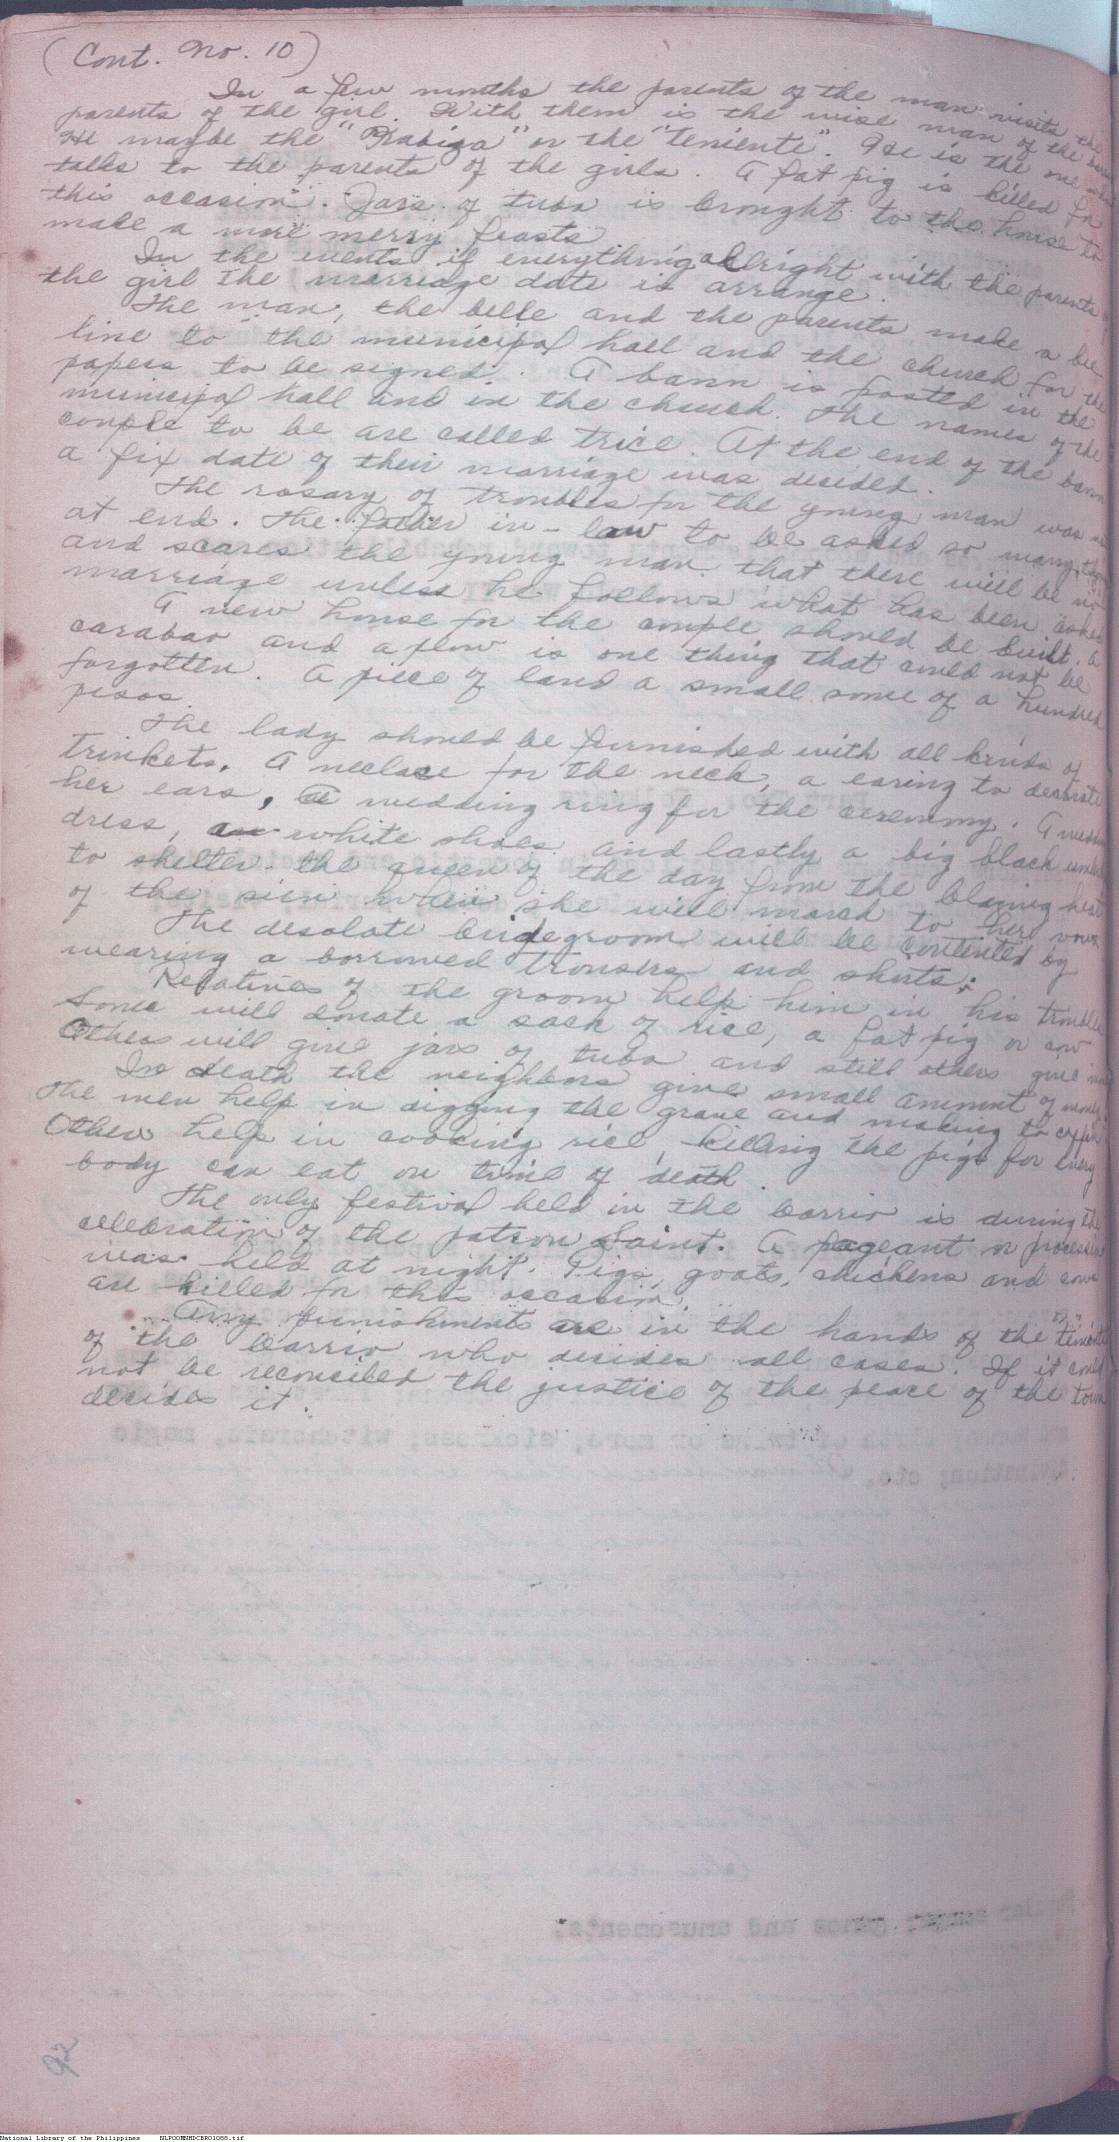 (Cont. No. 10)
In a few months the parents of the man visits the
parents of the girl. With them is the wise man of the
He maybe the "Kabiza" or the "teniente". He is the one who
talks to the parents of the girls. A fat pig is killed for
this occasion. Jars of tuba is brought to the house to
make a more merry feasts
In the events if everything allright with the parents
the girl the marriage date is arrange.
The man, the belle and the parents make a bee
line to the municipal hall and the church for the
papers to be signed. A bann is posted in the
municipal hall and in the church. The names of the
couple to be are called trice. At the end of the bann
a fix date of their marriage was decided.
The rosary of troubles for the young man was
at end. The father in-law to be asked so many
and scares the young man that there will be no
marriage unless he follows what has been asked
A new house for the couple should be built. A
carabao and a plow is one thing that could not be
forgotten. A piece of land a small some of a hundred
pesos.
The lady should be furnished with all kinds of
trinkets. A neclace for the neck, a earing to decorate
her ears, a wedding ring for the ceremony. A
dress, white shoes and lastly a big black
to shelter the queen of the day from the blazing heat
of the sun when she will march to
The desolate bridegroom will be contented by
wearing a borrowed trousers and shirts.
Relatives of the groom help him in his
Some will donate a sack of rice, a fat pig or cow
Others will give jars of tuba and still others give
In death the neighbors give small amount of
The men help in digging the grave and making to
Others help in cooking rice, killing the pigs for every
body can eat on time of death.
The only festival held in the barrio is during the
celebration of the patron Saint. A pageant or procession
was held at night. Pigs, goats, chickens and cows
are killed for this occasion.
Any punishments are in the hands of the "teniente
of the barrio who decides all cases. If it could
not be reconciled the justice of the peace of the town
decides it.
92
National Library of the Philippines NLPOOMNHDCBRO1088.tif